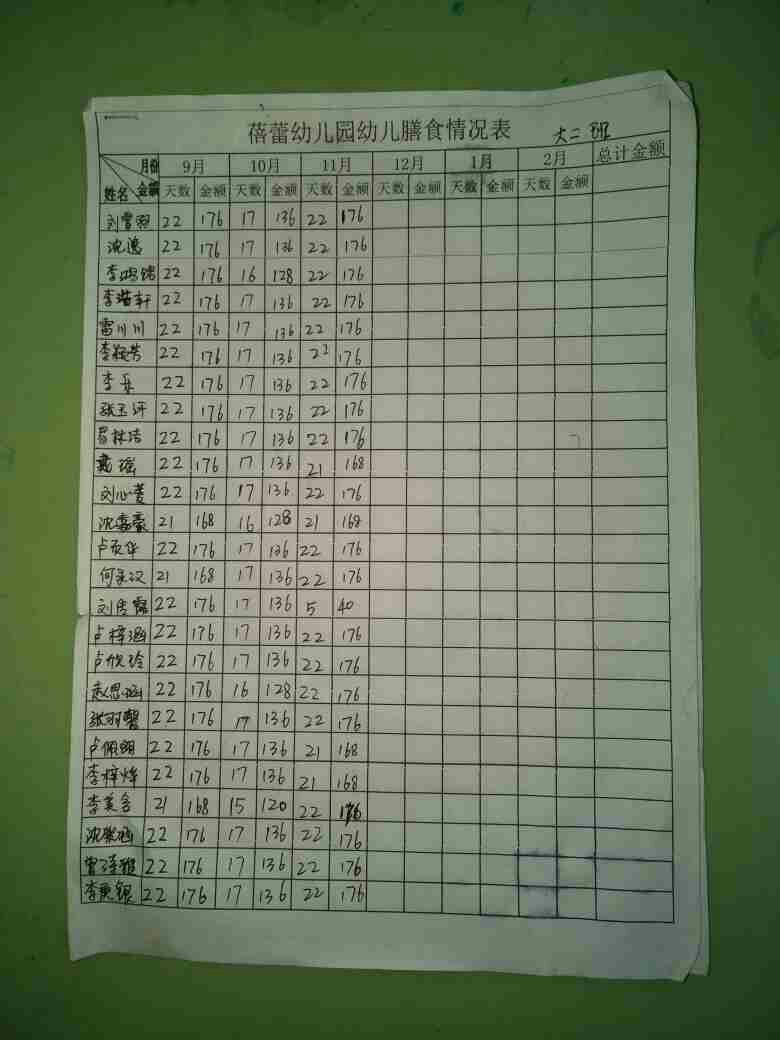 蓓蕾幼儿园幼儿膳食情况表 大二班
月份 9月 10月 11月 12月 1月 2月 总计金额
姓名 金额 天数 金额 天数 金额 天数 金额 天数 金额 天数 金额 天数 金额
刘雪 22 176 17 136 22 176
沈逸 22 176 17 136 22 176
李鸿 22 176 16 128 22 176
李 轩 22 176 17 136 22 176
雷川川 22 176 17 136 22 176
李 芳 22 176 17 136 22 176
李乐 22 176 17 136 22 176
张玉 22 176 17 136 22 176
林洁 22 176 17 136 22 176
戴瑶 22 176 17 136 21 168
刘心菱 22 176 17 136 22 176
沈 豪 21 168 16 128 21 168
卢 华 22 176 17 136 22 176
何 汉 21 168 17 136 22 176
刘 露 22 176 17 136 5 40
卢梓涵 22 176 17 136 22 176
卢欣玲 22 176 17 136 22 176
思涵 22 176 16 128 22 176
张羽馨 22 176 17 136 22 176
卢佩 22 176 17 136 21 168
李梓烨 22 176 17 136 21 168
李美含 21 168 15 120 22 176
沈 涵 22 176 17 136 22 176
曾 雅 22 176 17 136 22 176
李 银 22 176 17 136 22 176